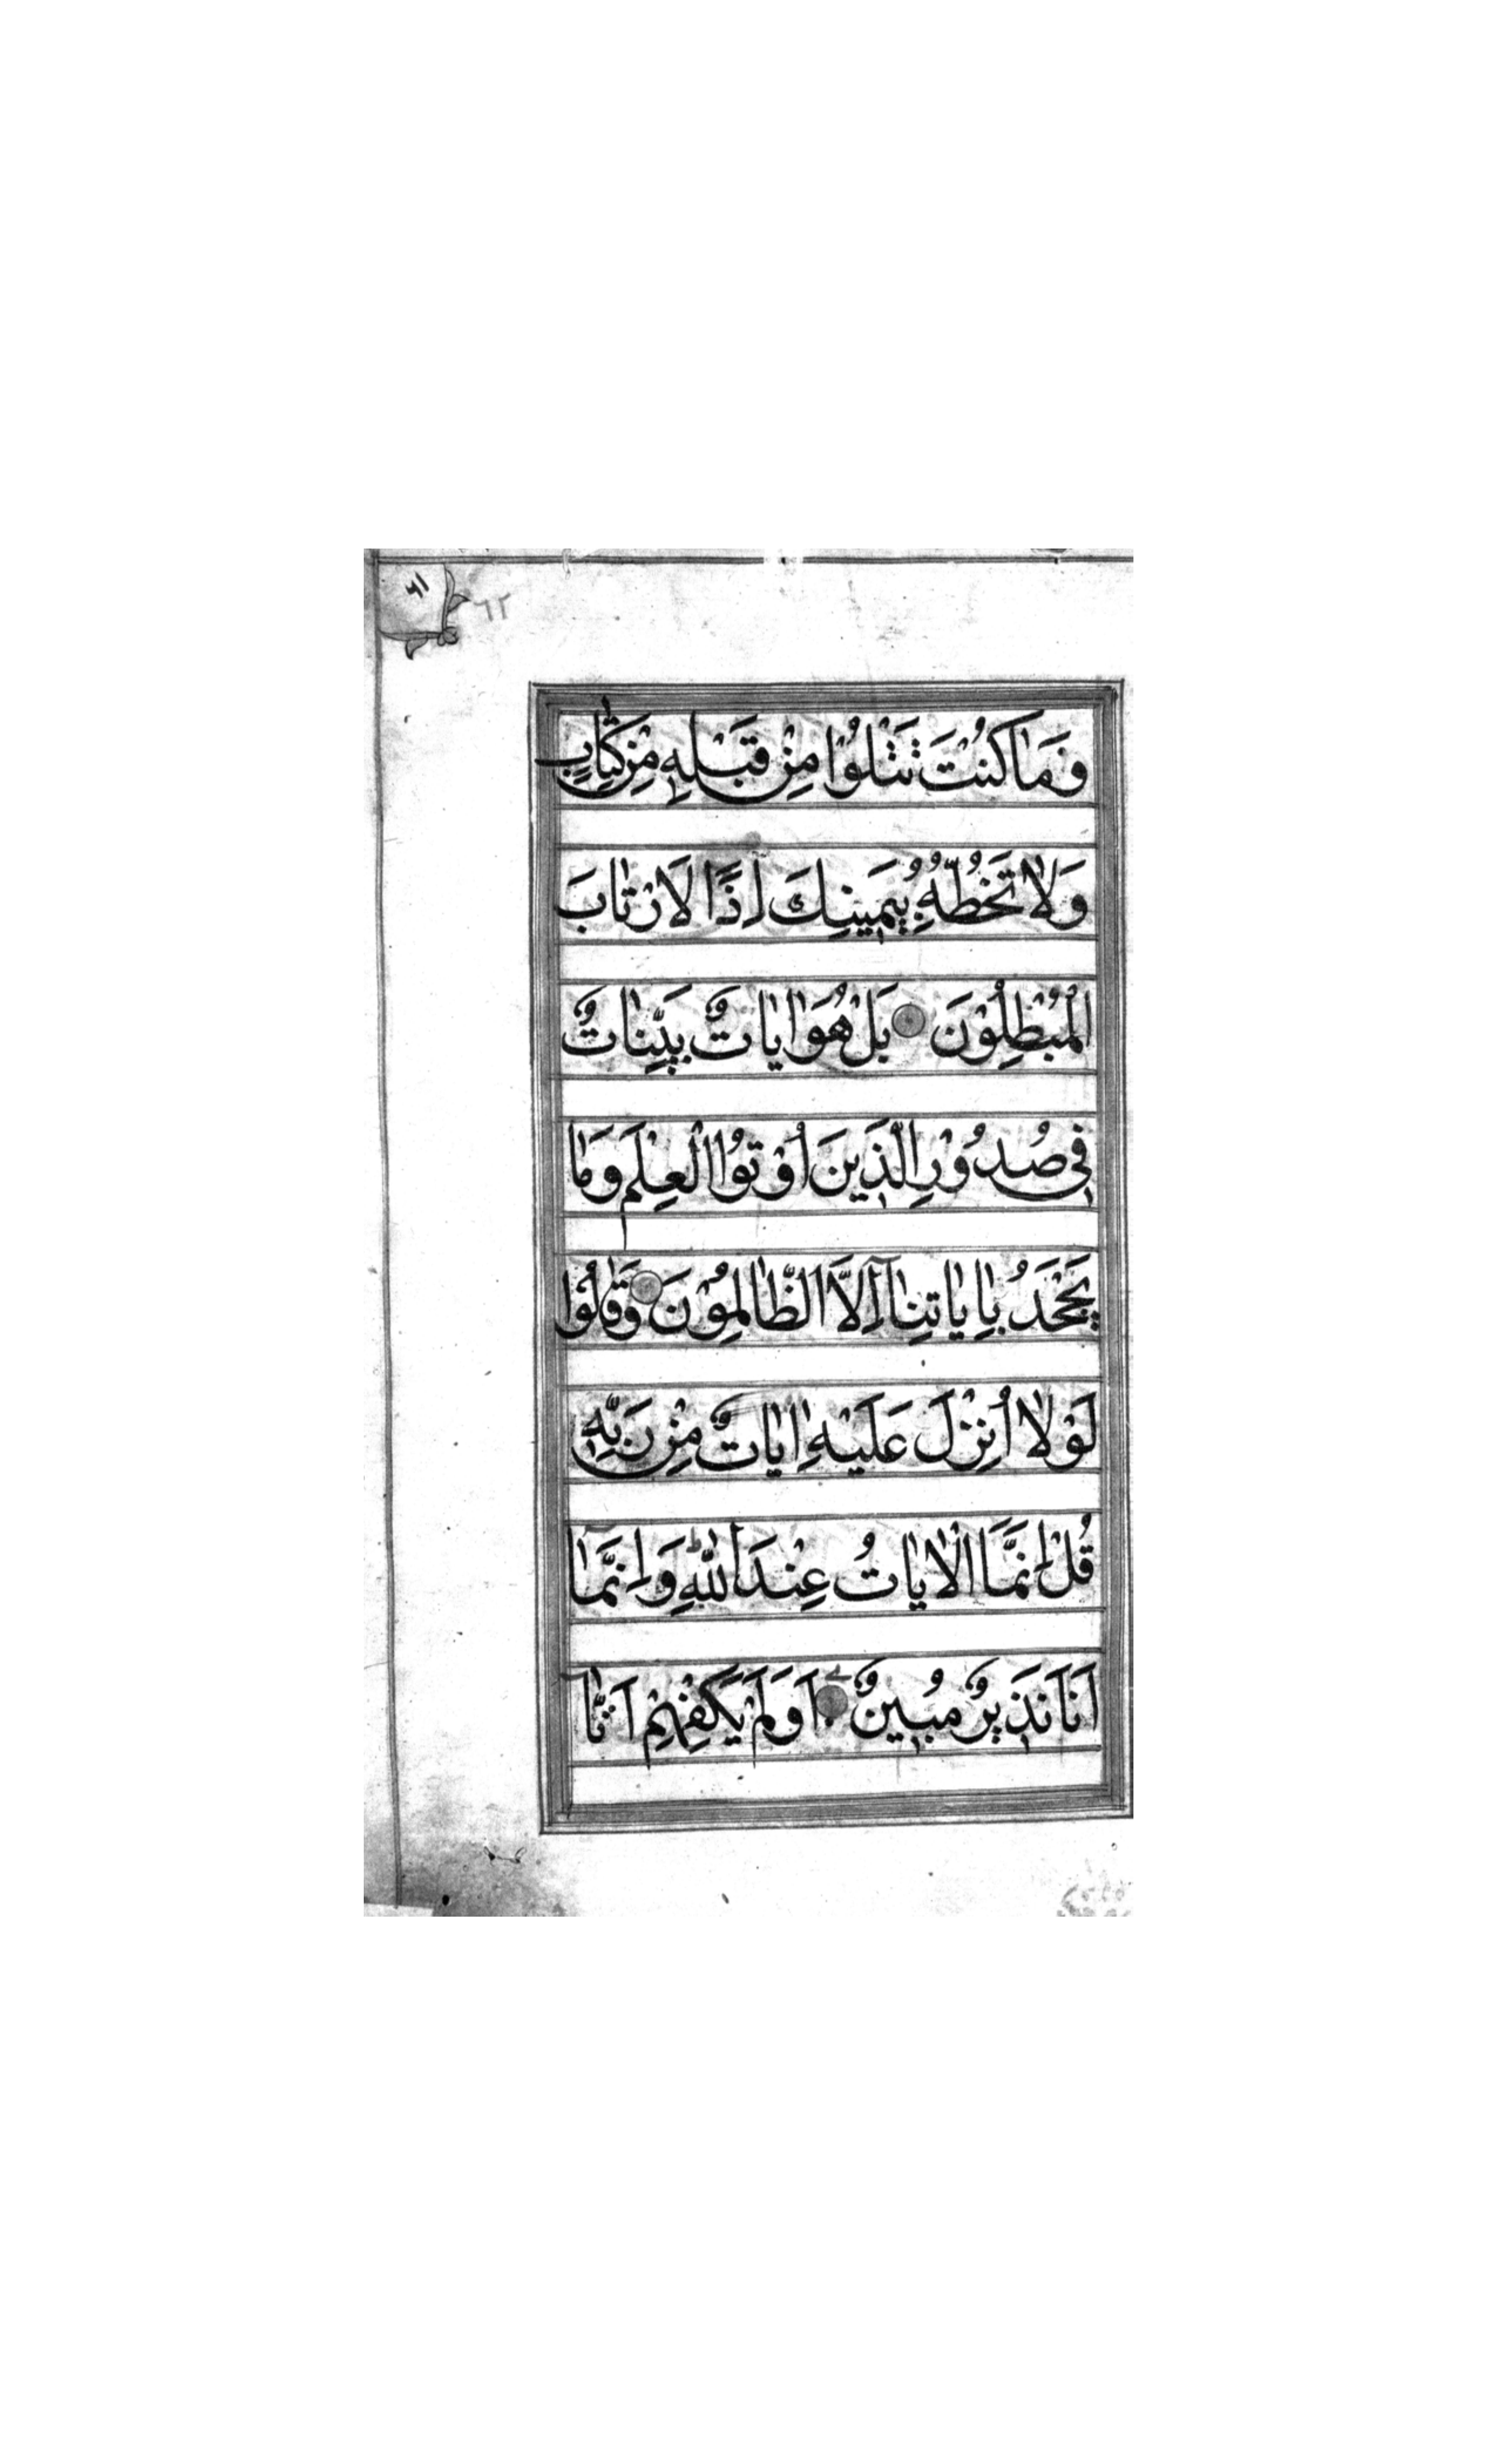 ٦١
٦٢
وَمَا كُنْتَ تَتْلُوْا مِنْ قَبْلِهِ مِنْ كِتَابٍ
وَلَا تَخُطُّهُ بِيَمِينِكَ اِذًا لَارْتَابَ
الْمُبْطِلُوْنَ بَلْ هُوَ اٰيَاتٌ بَيِّنَاتٌ
فِي صُدُوْرِ الَّذِينَ اُوْتُوا الْعِلْمَ وَمَا
يَجْحَدُ بِاٰيَاتِنَآ اِلَّا الظَّالِمُوْنَ وَقَالُوْا
لَوْلَا اُنْزِلَ عَلَيْهِ اٰيَاتٌ مِنْ رَبِّهِ
قُلْ اِنَّمَا الْاٰيَاتُ عِنْدَ اللّٰهِ ط وَاِنَّمَآ
اَنَا نَذِيرٌ مُبِينٌ اَوَلَمْ يَكْفِهِمْ اَنَّآ